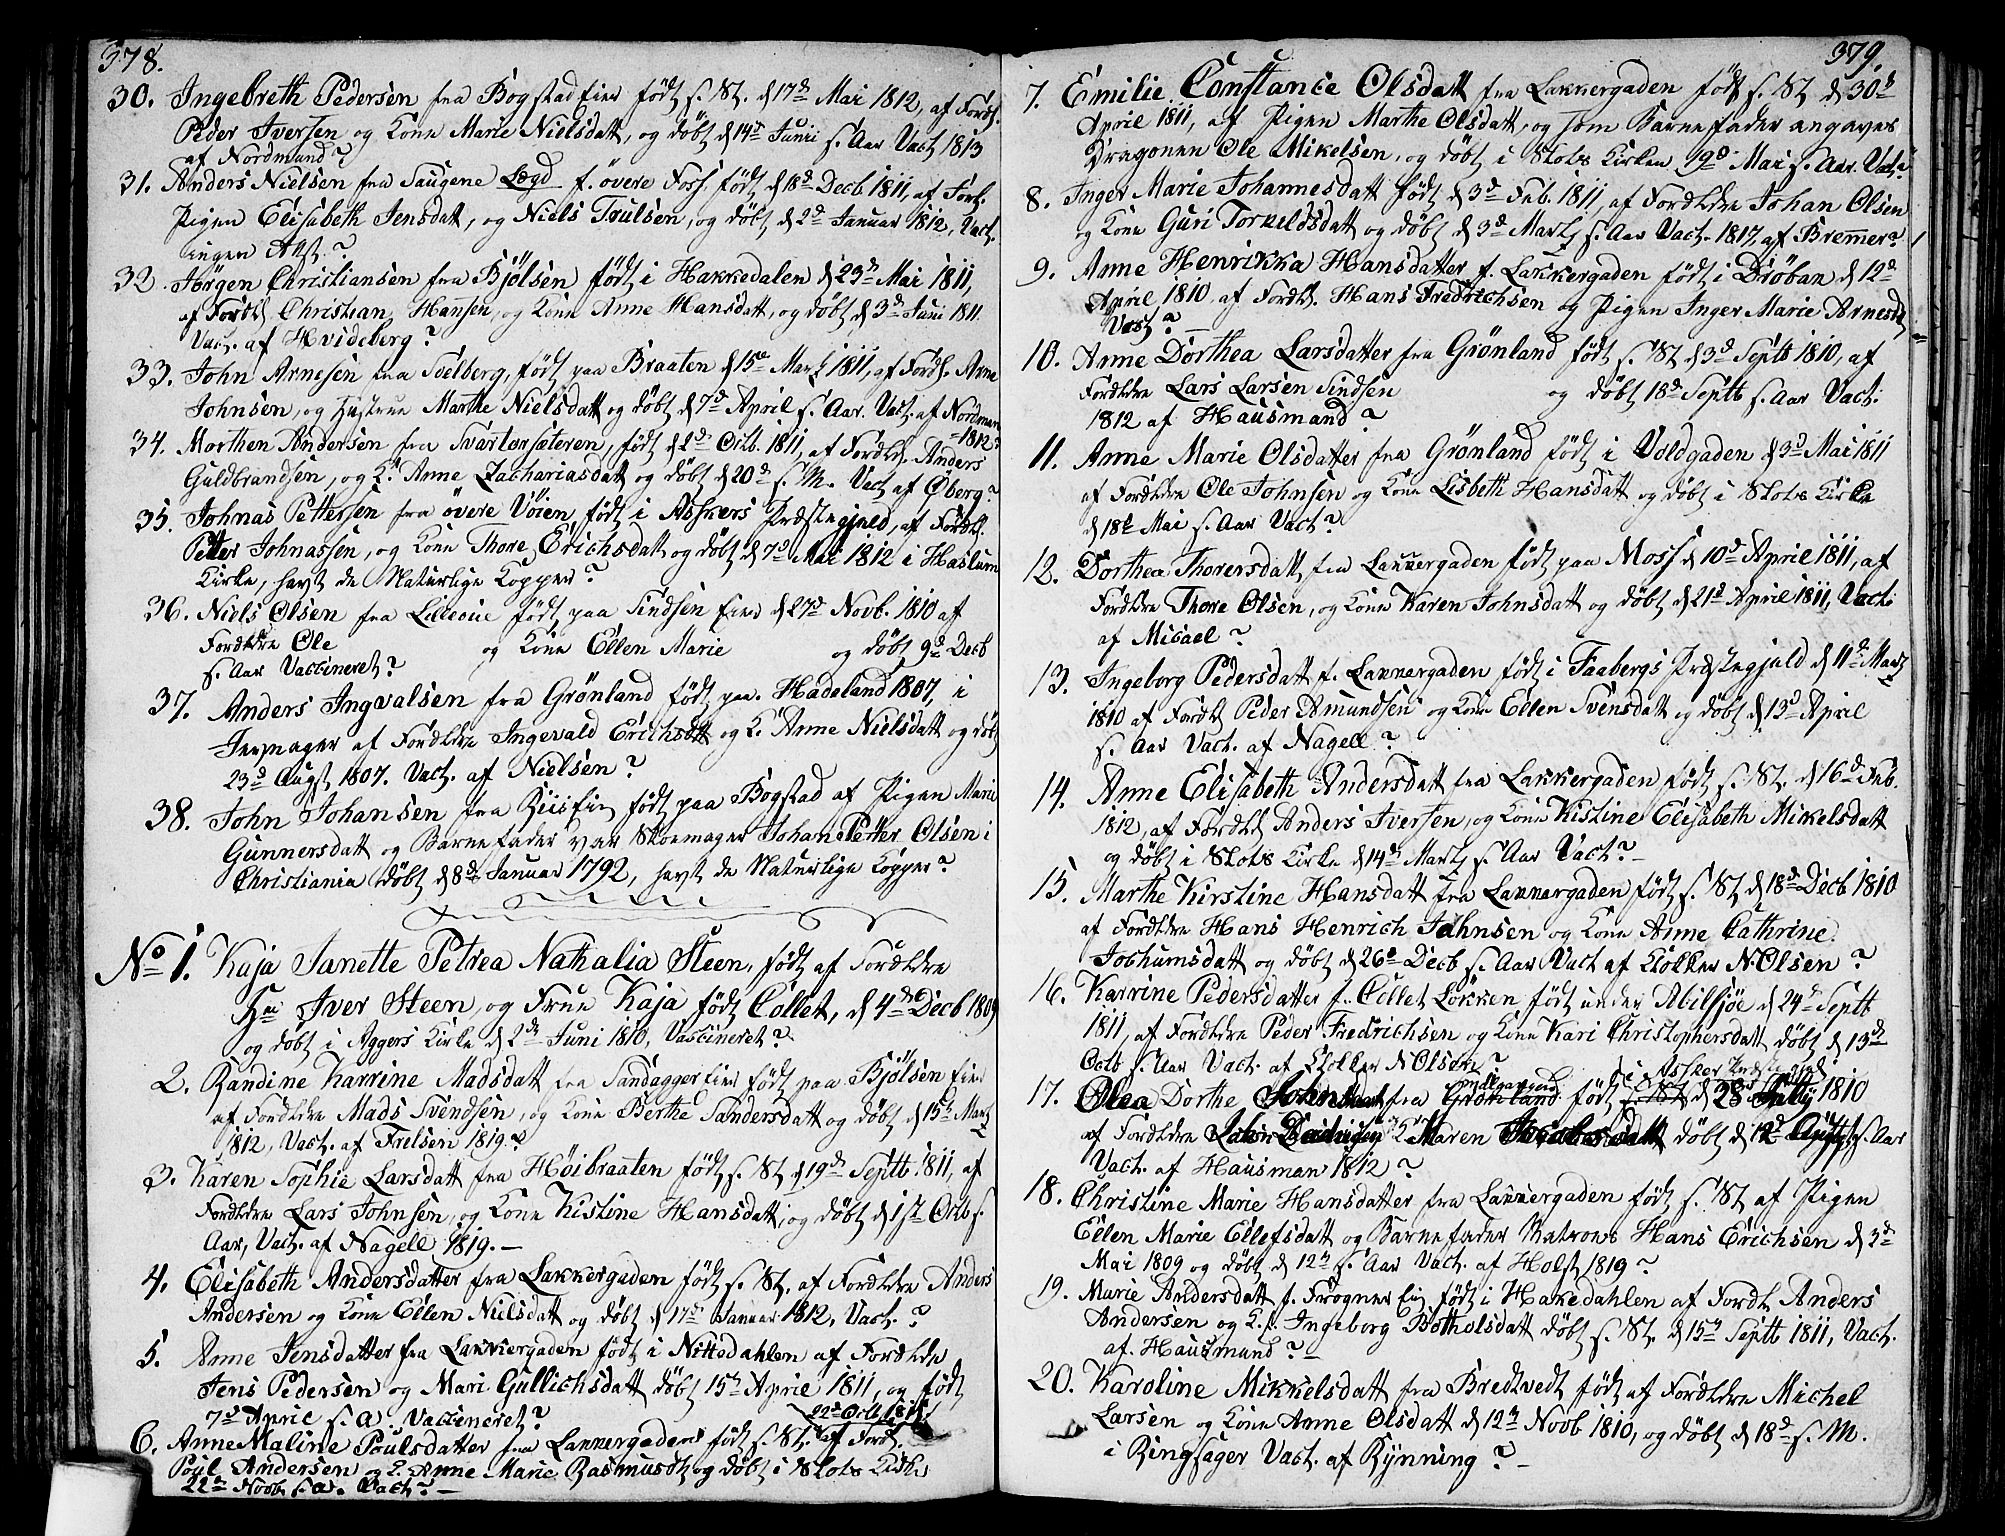 378.
30. Ingebreth Pedersen fra Bogstad Eier født s. St. d 17d Mai 1812, af Fordl.
Peder Iversen og Kone Marie Nielsdatt, og døbt d 14d Junii s. Aar Vact 1813
af Nordmand?
31. Anders Nielsen fra Saugene Lægd f. øvere Foss. født d 18d Decb 1811, af
Pigen Elisabeth Jensdatt, og Niels Poulsen, og døbt d 2d Januar 1812, Vact.
ingen Att.?
32. Jørgen Christiansen fra Bjølsen født i Hakkedalen d 23d Mai 1811,
af Fordl Christian Hansen, og Kone Anne Hansdatt, og døbt d 3d Juni 1811.
Vact. af Hvideberg?
33. John Arnesen fra født paa Braaten d 15d Martz 1811, af Fordl. Arne
Johnsen, og Hustrue Marthe Nielsdatt og døbt d 7d April s. Aar. Vact. af Nordman
1812?
34. Morthen Andersen fra født d 2d Octb. 1811, af Fordld. Anders
Guldbrandsen, og K. Anne Zachariasdatt og døbt d 20d s. M. Vact af Øberg?
35. Johnas Pettersen fra øvere Vöien født i Askers Præstegjeld, af Fordl.
Petter Johnassen, og Kone Thore Erichsdatt og døbt d 7d Mai 1812 i Haslum
Kirke, havt de Naturlige Kopper?
36. Niels Olsen fra født paa Sindsen Eier d 27d Novb. 1810 af
Fordldre Ole og Kone Ellen Marie og døbt 9d Decb
s. Aar Vaccineret?
37. Anders Ingvalsen fra Grønland født paa Hadeland 1807, i
Jevnager af Fordldre Ingevald Erichsdtt og K. Anne Nielsdatt og døbt
23d Augst 1807. Vact. af Nielsen?
38. John Johansen fra født paa Bogstad af Pigen Marie
Gunnersdatt og Barnefader var Skoemager Johan Petter Olsen i
Christiania døbt d 8d Januar 1792, havt de Naturlige Kopper?
No 1. Kaja Janette Petrea Nathalia Steen, født af Fordldre
Hr Iver Steen, og Frue Kaja født Collet, d 4de Decb 1809
og døbt i Aggers Kirke d 2d Juni 1810, Vaccineret?
2. Randine Karrine Madsdatt fra Sandagger Eier født paa Bjølsen Eier
af Fordldre Mads Svendsen, og Kone Berthe Sandersdatt og døbt d 15d Martz
1812, Vact. af Frelsen 1819?
3. Karen Sophie Larsdatt fra Høibraaten født s. St. d 19d Septb. 1811, af
Fordldre Lars Johnsen, og Kone Kistine Hansdatt, og døbt d 1st Octb s.
Aar, Vact. af Nagell 1819.
4. Elisabeth Andersdatter fra Lakkergaden født s. St. af Fordldre Anders
Andersen og Kone Ellen Nielsdatt og døbt d 17d Januar 1812, Vact.?
5. Anne Jensdatter fra Lakkergaden født i Nittedahlen af Fordldre
Jens Pedersen og Mari Gullichsdatt døbt 15d Aprie 1811, og født
7d Aprie s. a. Vaccineret?
22d Oct 1811
6. Anne Maline Poulsdatter fra Lakkergaden født s. St. af Fordl.
Poul Andersen og K. Anne Marie Rasmusdt og døbt i Slots Kirke
22d Novb s. a. Vact?
379.
7. Emilie Constance Olsdatt fra Lakkergaden født s. St d 30d
April 1811, af Pigen Marthe Olsdatt, og som Barnefader angaves
Dragonen Ole Mikelsen, og døbt i Slots Kirken 19d Mai s. Aar. Vact?
8. Inger Marie Johannesdatt født d 3d Feb. 1811, af Fordldre Johan Olsen
og Kone Guri Torkeldsdatt og døbt d 3d Martz s. Aar Vact. 1817, af Bremer?
9. Anne Henrikka Hansdatter f. Lakkergaden født i Drøbak d 12d
April 1810, af Fordl. Hans Fredrichsen og Pigen Inger Marie Arnesd
Vact?
10. Anne Dorthea Larsdatter fra Grønland født s. St d 3d Septb 1810, af
Fordldre Lars Larsen Sindsen og døbt 18d Septb s. Aar Vact.
1812 af Hausmand?
11. Anne Marie Olsdatter fra Grønland født i Voldgaden d 3d Mai 1811
af Fordldre Ole Johnsen og Kone Lisbeth Hansdatt og døbt i Slots Kirke
d 18d Mai s. Aar Vact?
12. Dorthea Thorersdatt, fra Lakkergaden født paa Moss d 10d April 1811, af
Fordldre Thore Olsen, og Kone Karen Johnsdatt og døbt d 21d April 1811, Vact.
af Micael?
13. Ingeborg Pedersdatt f. Lakkergaden født i Faabergs Præstegjeld d 11d Martz
1810 af Fordld Peder Amundsen og Kone Ellen Svensdatt og døbt d 13d April
s. Aar Vact. af Nagell?
14. Anne Elisabeth Andersdatt fra Lakkergaden født s. St. d 16d Feb.
1812, af Fordld Anders Iversen, og Kone Kistine Elisabeth Mikkelsdatt
og døbt i Slots Kirke d 14d Martz s. Aar Vact?
15. Marthe Kirstine Hansdatt fra Lakkergaden født s. St d 18d Decb 1810
af Fordldre Hans Henrich Johnsen og Kone Anne Cathrine
Jochumsdatt og døbt d 26d Decb s. Aar Vact af Klokker N Olsen?
16. Karrine Pedersdatter f. Collet Løkken født under Abilsjøe d 24d Septb
1811, af Fordldre Peder Fredrichsen og Kone Kari Christophersdatt døbt d 13d
Octb s. Aar Vact. af Klokker N Olsen?
i Asker Præstegjeld
17. Olea Dorthe fra Grønland født s. St d 28 1810
af Fordldre K Maren døbt d 12d s. Aar
Vact. af Hausman 1812?
18. Christine Marie Hansdatter fra Lakkergaden født s. St af Pigen
Ellen Marie Ellefsdatt og Barnefader Matros Hans Erichsen d 3d
Mai 1809 og døbt d 12d s. Aar Vact. af Holst 1819?
19. Marie Andersdatt f. Frogner Eier født i Hakedahlen af Fordl. Anders
Andersen og K. Ingeborg Botholsdatt døbt s. St. d 15d Septb 1811, Vact.
af Hausmand?
20. Karoline Mikkelsdatt fra Bredtvedt født af Fordldre Michel
Larsen og Kone Anne Olsdatt d 12d Novb 1810, og døbt d 18d s. M.
i Ringsager Vact. af Rynning?